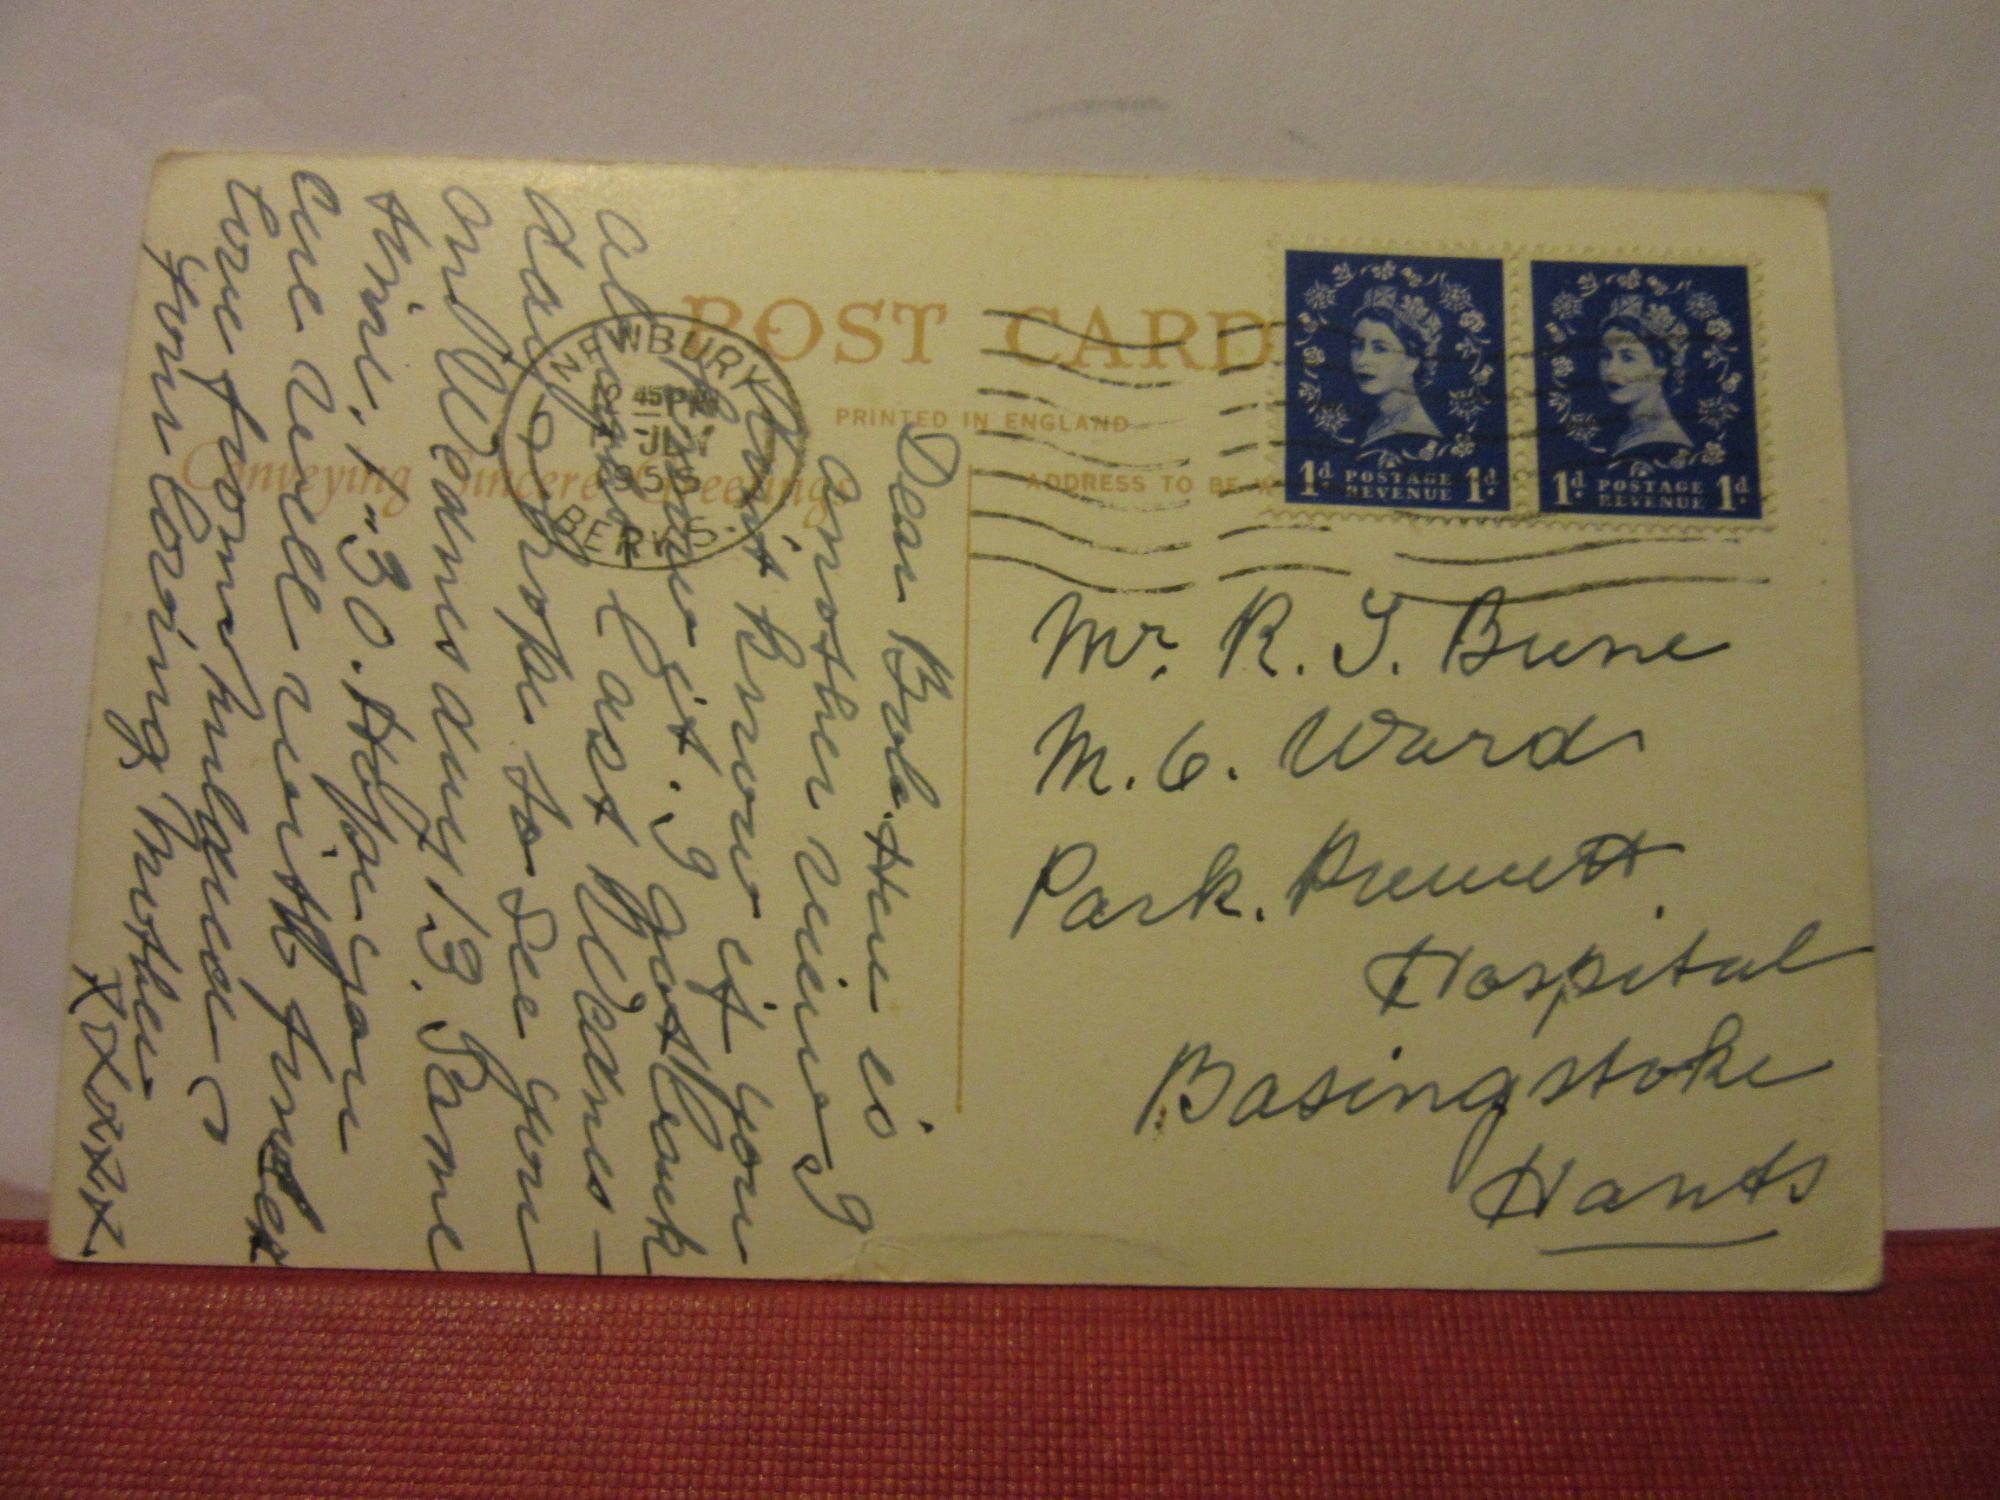 POST CARD
PRINTED IN ENGLAND
Conveying Sincere Greetings
ADDRESS TO BE
NEWBURY
12 45 PM
JLY
1955
BERKS.
1d POSTAGE REVENUE 1d.
1d. POSTAGE REVENUE 1d.
Dear Bob. Here is
another view
I know if you
it. I got back
al last Wednes-
day hope to see you
on Wednesday 13. Same
time, 1-30. Hope you
are well with
love from
Your loving Mother
XXXXXX
Mr. R. J. Bune
M. 6. Ward
Park. Prewett
Hospital
Basingstoke
Hants